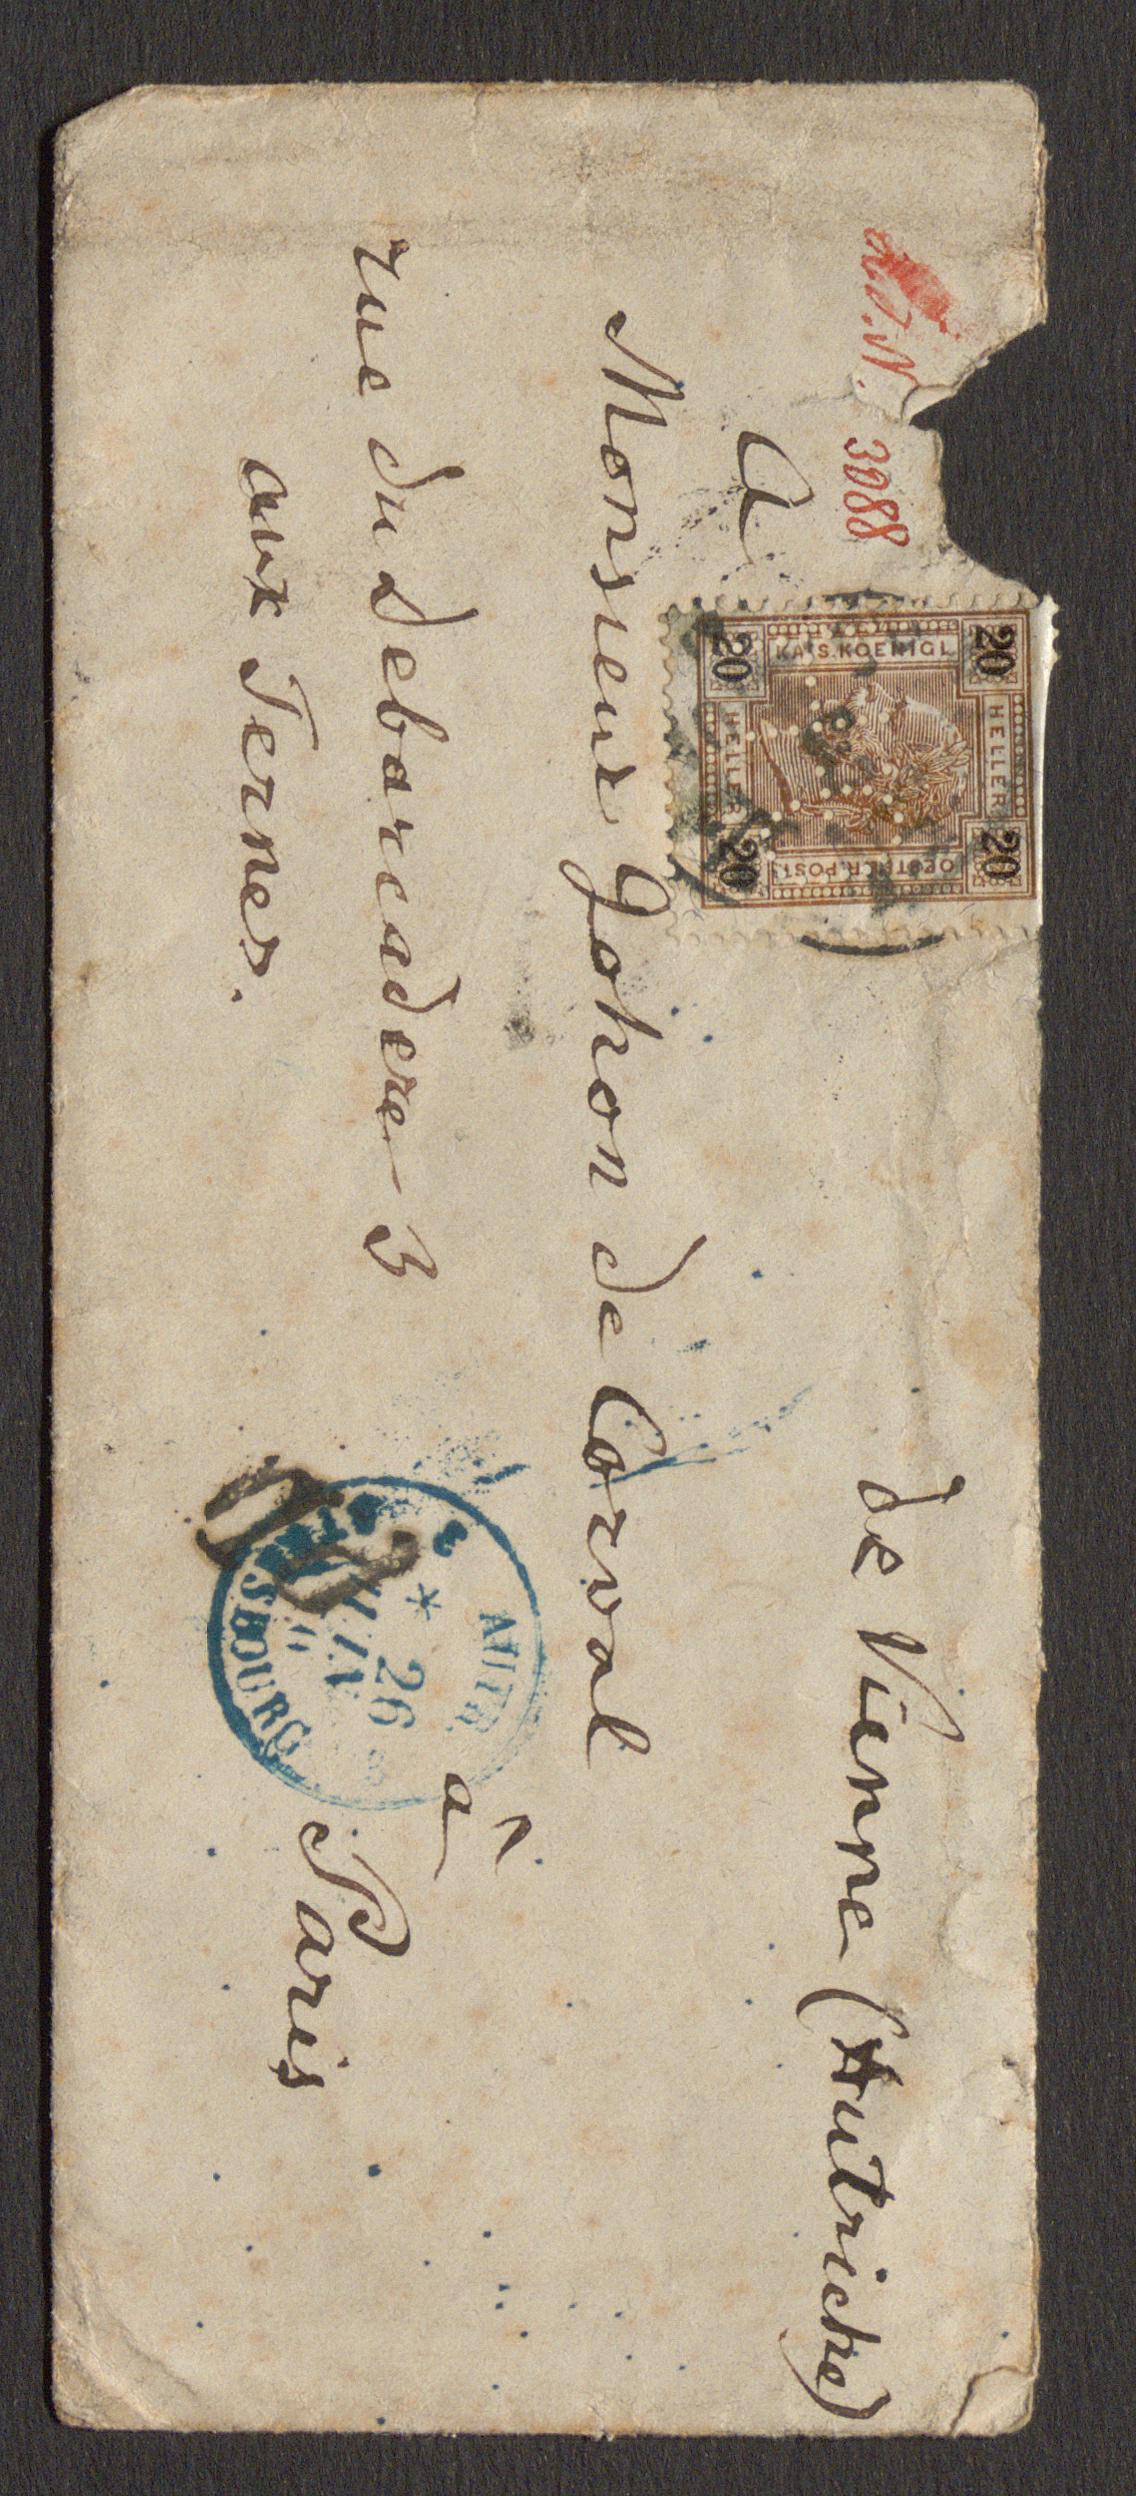 de Vienne (Autriche)
3088
A
Monsieur Johon de Corval
rue du debarcadere 3
à
aux Ternes.
Paris
KAIS. KOENIGL
20 20
HELLER HELLER
20 20
OESTERR. POST
AUTR.
3
* 26
STRASBOURG